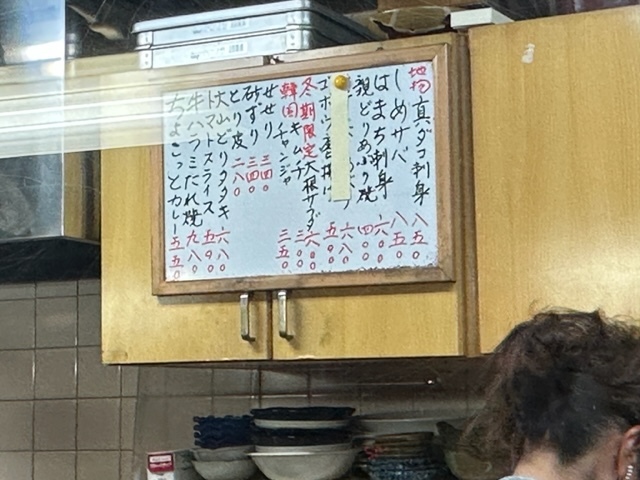 地物 真ダコ刺身 八五〇
しめサバ 八五〇
はまち刺身
親どりあぶり焼
ゴボウ唐揚げ
冬期限定 大根サラダ
韓国 キムチ
チャンジャ 三五〇
せせり 三四〇
砂ずり 三四〇
とり皮 二八〇
大山どりタタキ 六八〇
トマトスライス 五九〇
牛ハラミたれ焼 九八〇
ちょこっとカレー 五五〇